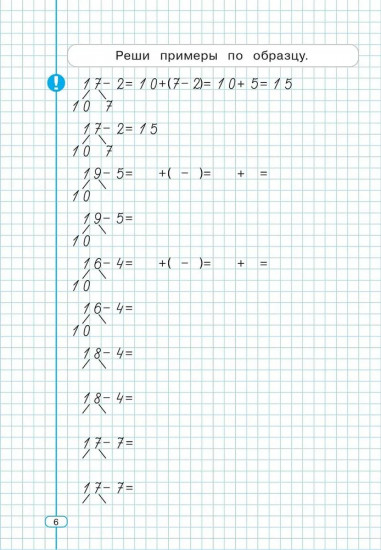 Реши примеры по образцу.
! 17-2=10+(7-2)=10+5=15
10 7
17-2=15
10 7
19-5= +( - )= + =
10
19-5=
10
16-4= +( - )= + =
10
16-4=
10
18-4=
18-4=
17-7=
17-7=
6